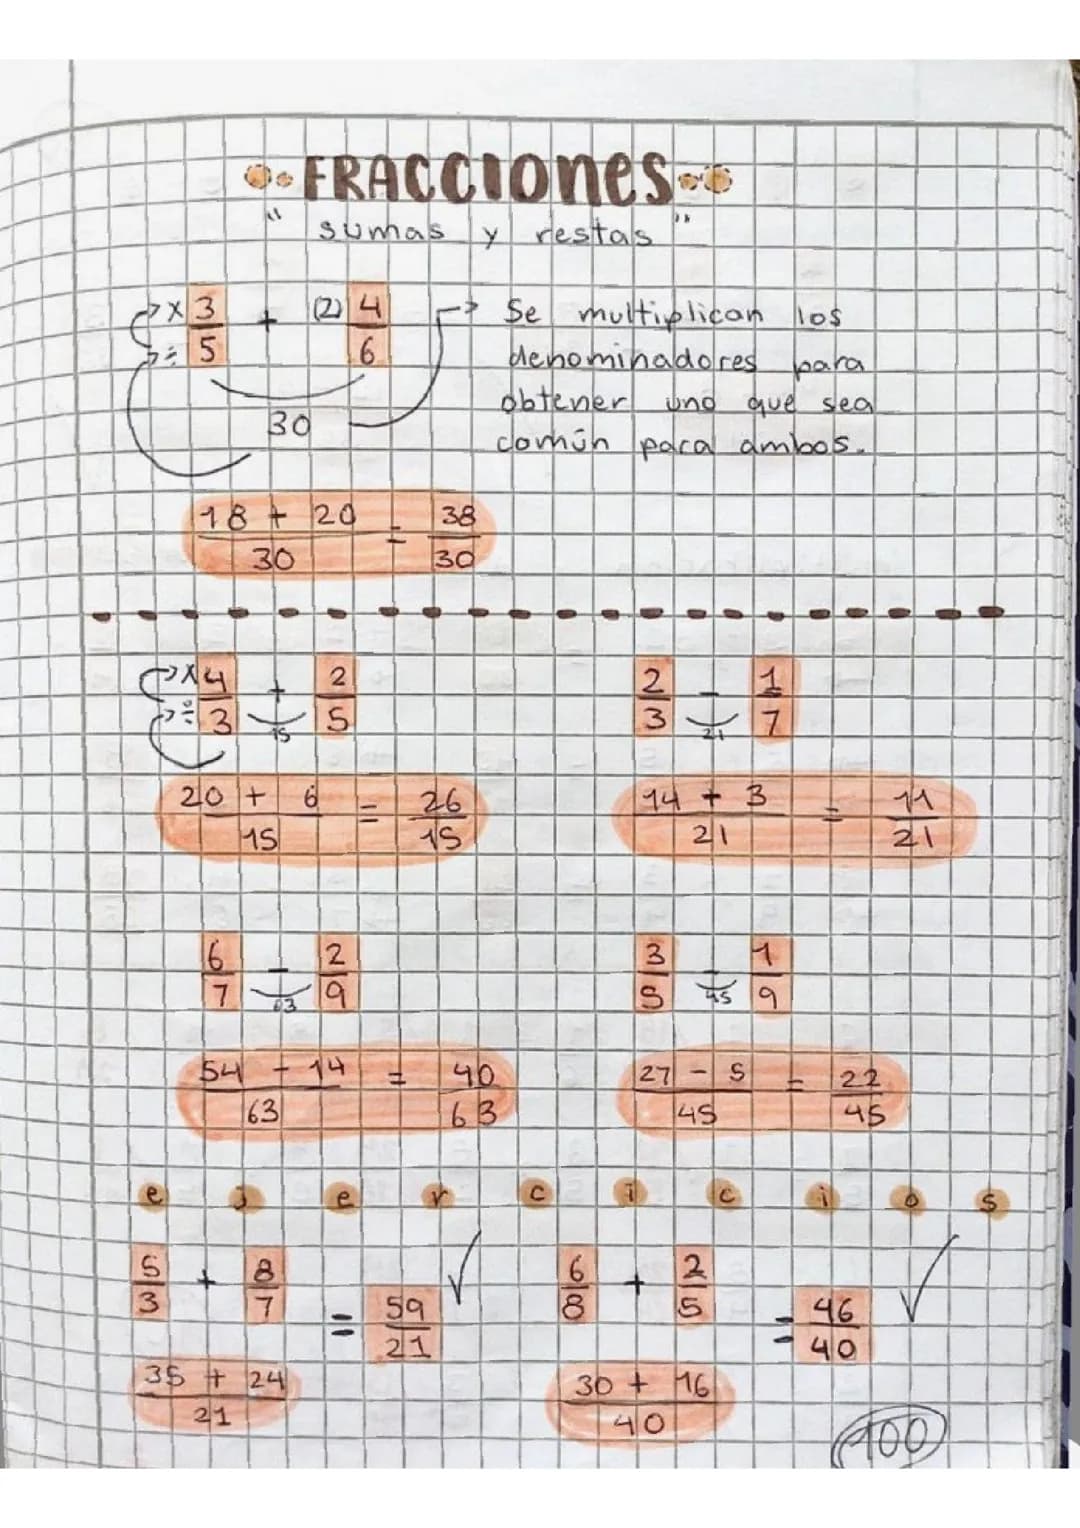 FRACCIONES
"sumas y restas"
x 3/5 + (2) 4/6
÷
30
Se multiplican los
denominadores para
obtener uno que sea
común para ambos.
18 + 20 / 30 = 38/30
x 4/3 + 2/5
÷
15
20 + 6 / 15 = 26/15
2/3 - 1/7
21
14 + 3 / 21 = 11/21
6/7 - 2/9
63
54 - 14 / 63 = 40/63
3/5 - 1/9
45
27 - 5 / 45 = 22/45
ejercicios
5/3 + 8/7 = 59/21 ✓
35 + 24 / 21
6/8 + 2/5 = 46/40 ✓
30 + 16 / 40
100